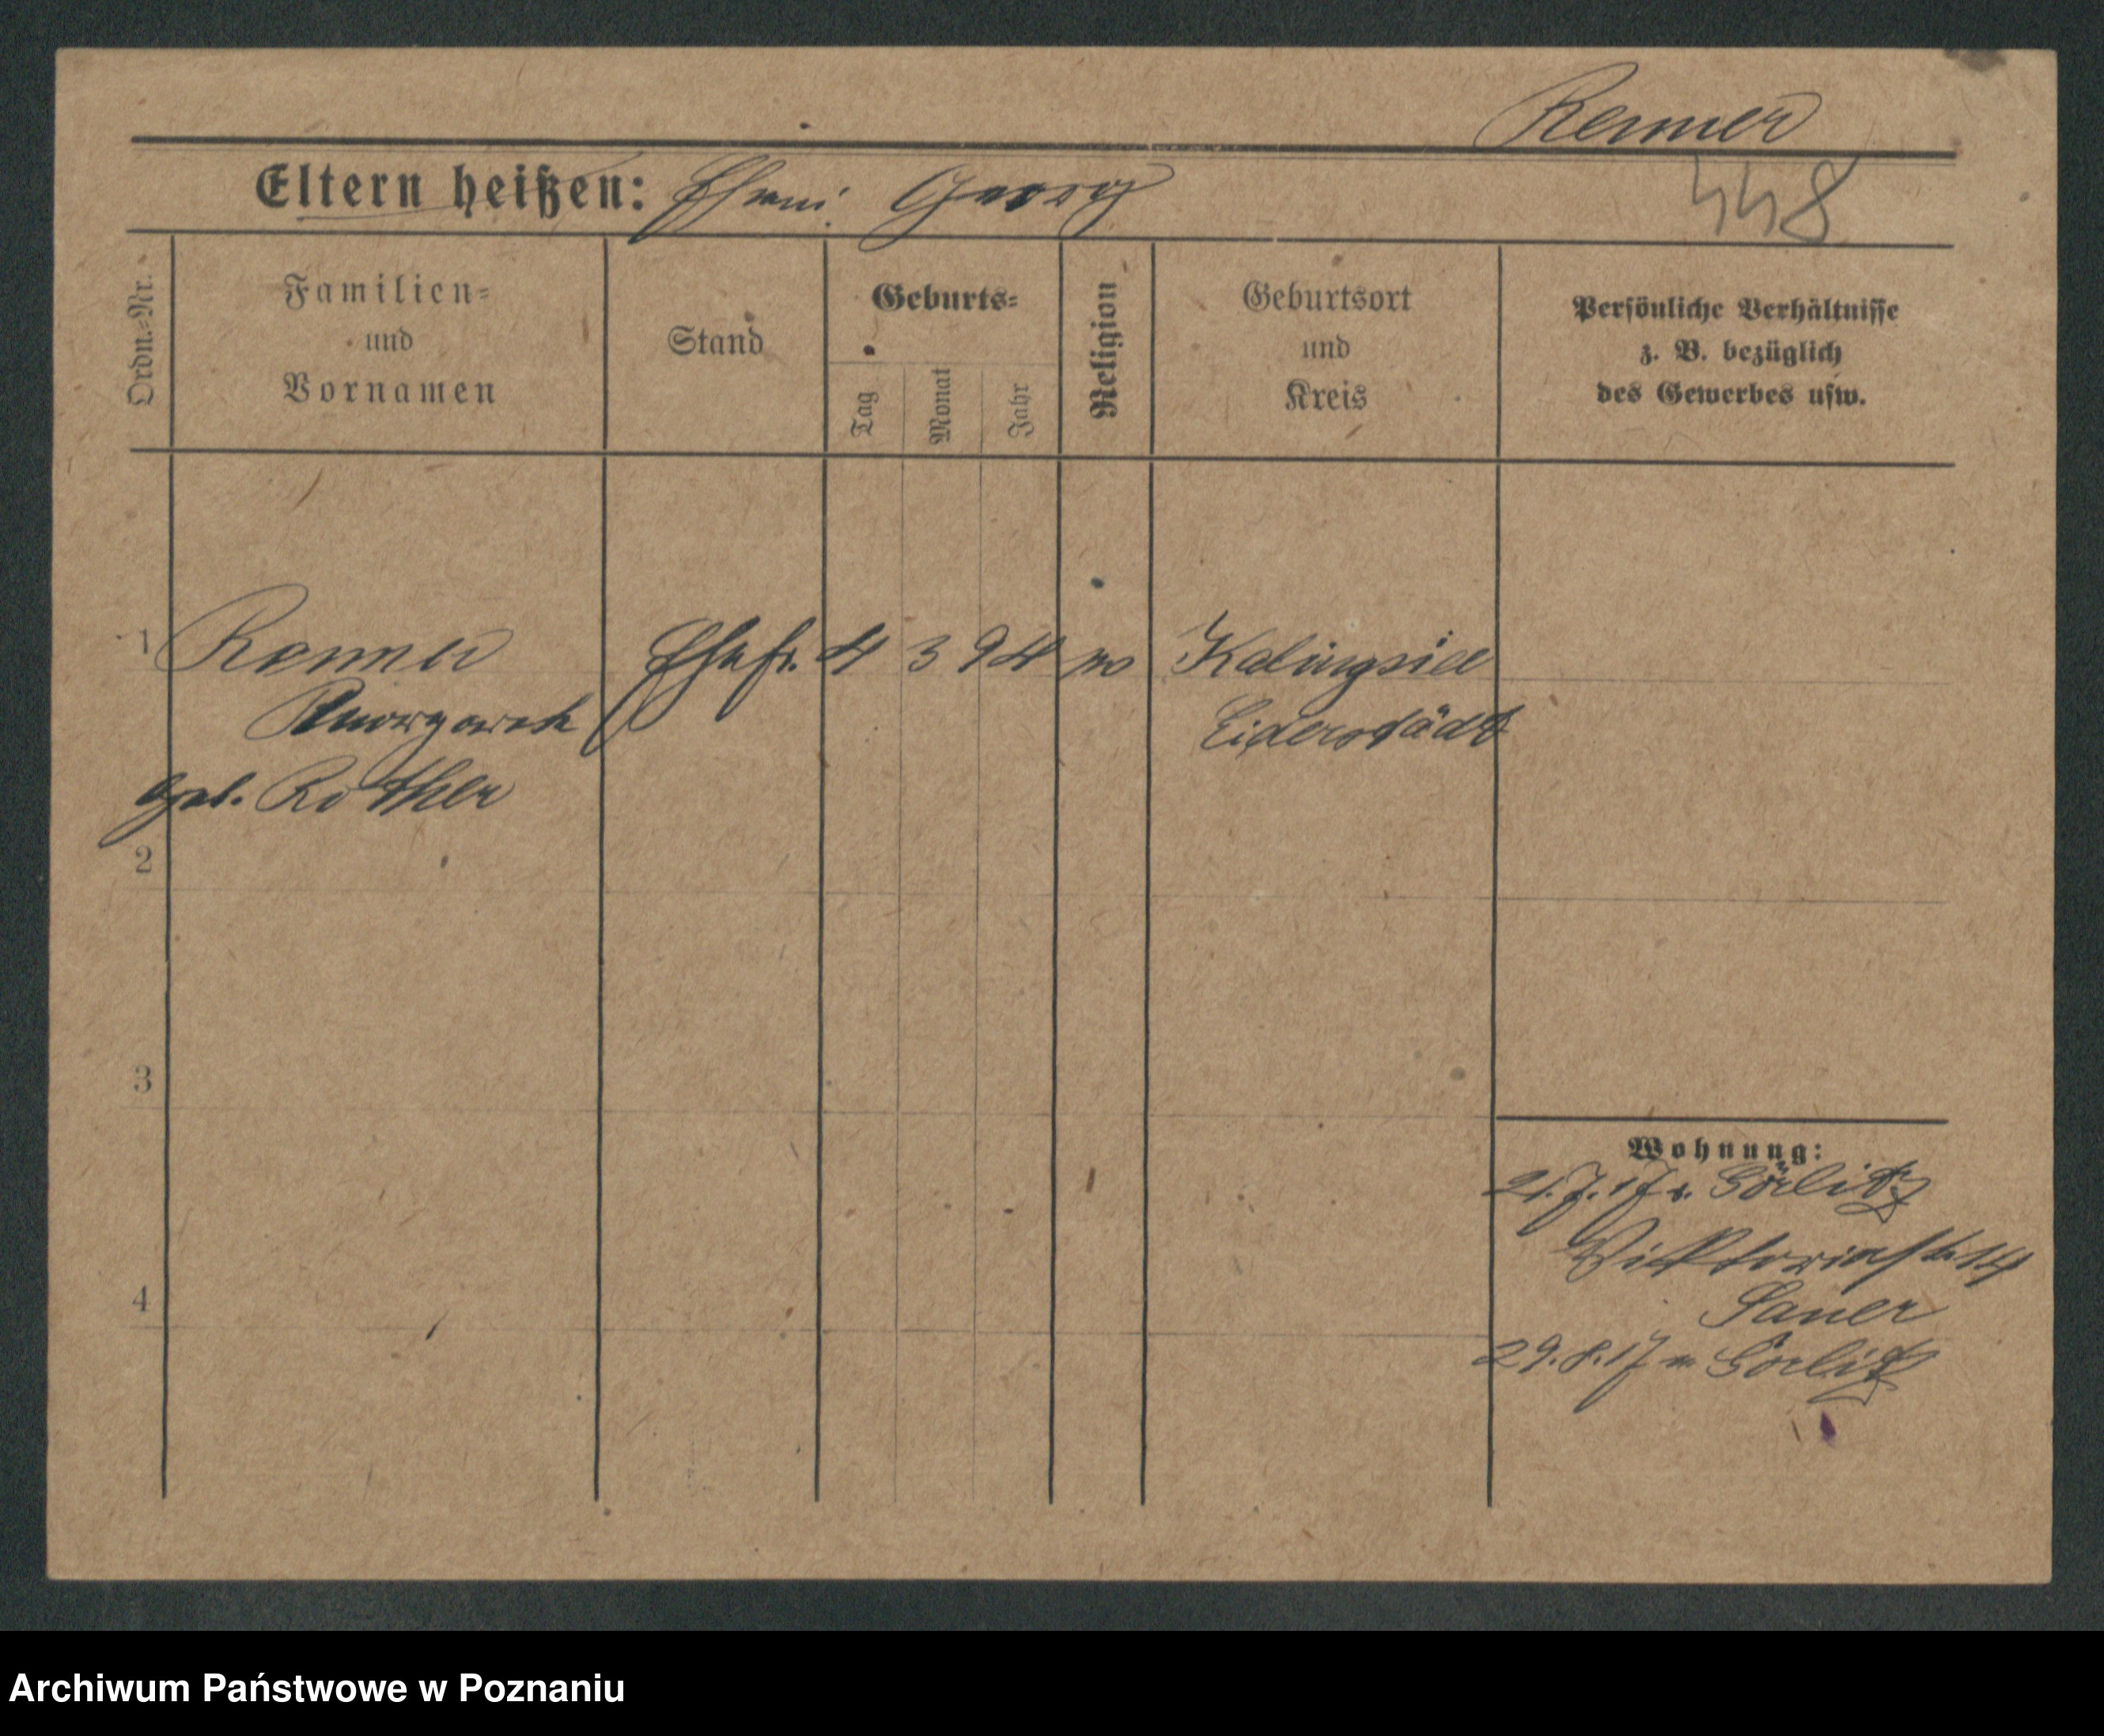 Renner
Eltern heißen: Ehem. Georg
448
Ordn.-Nr.
Familien-
und
Vornamen
Stand
Geburts-
Tag
Monat
Jahr
Religion
Geburtsort
und
Kreis
Persönliche Verhältnisse
z. B. bezüglich
des Gewerbes usw.
1 Renner Ehefr. 4 3 94 Katingsiel
Margarete Eiderstädt
geb. Rother
2
3
4
Wohnung:
21.7.17 v. Görlitz
Viktoriastr. 14
Sauer
29.8.17 n Görlitz
Archiwum Państwowe w Poznaniu